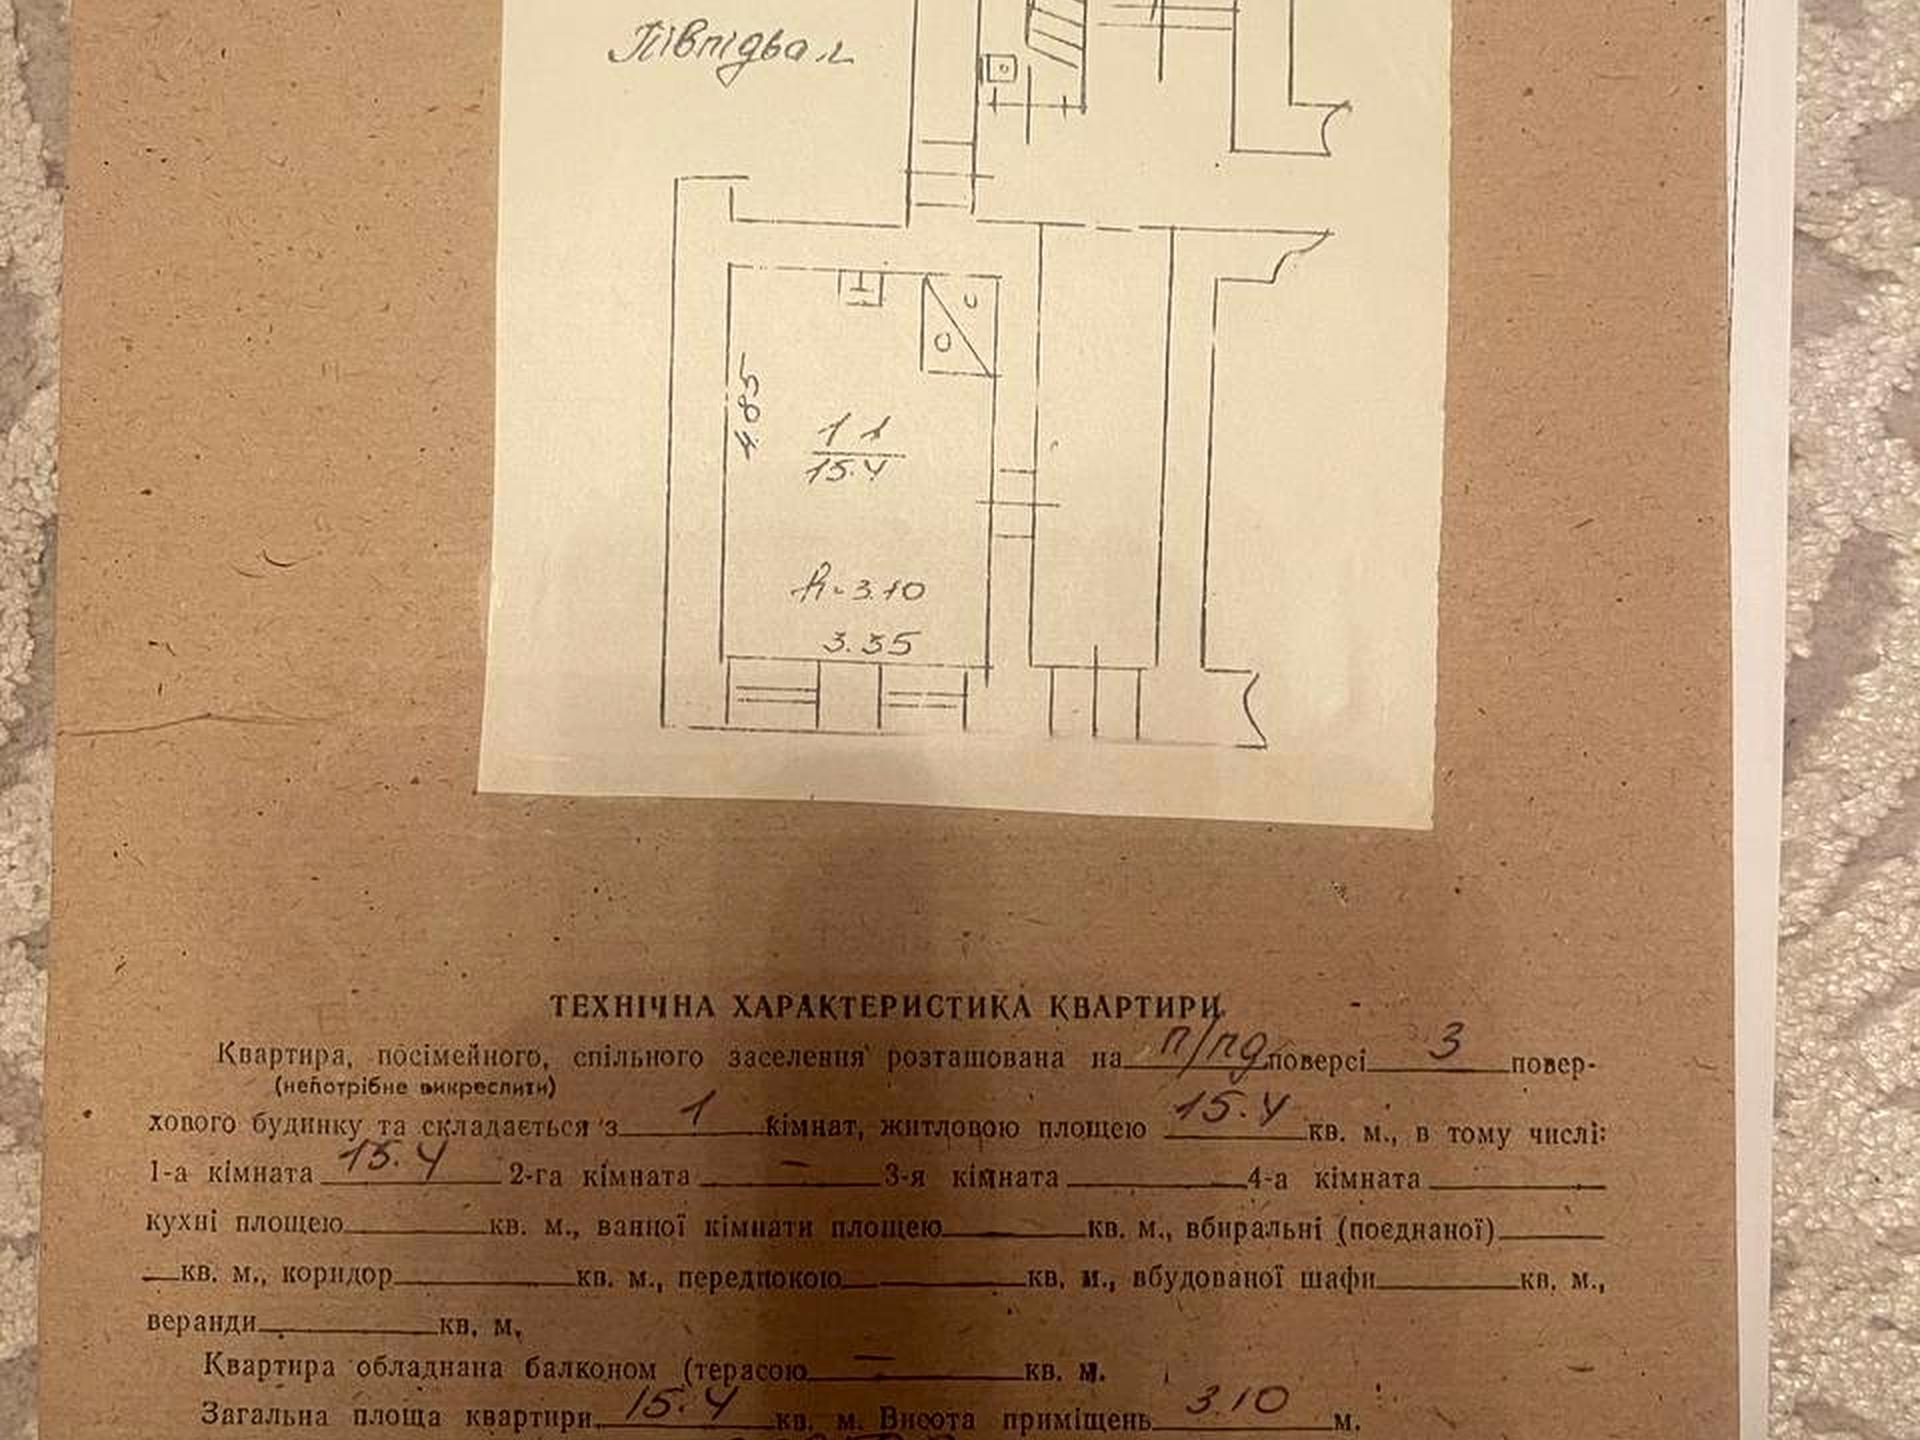 Півпідвал
4.85
1 1
15.4
h-3.10
3.35
ТЕХНІЧНА ХАРАКТЕРИСТИКА КВАРТИРИ
Квартира, посімейного, спільного заселення розташована на п/пд поверсі 3 повер-
(непотрібне викреслити)
хового будинку та складається з 1 кімнат, житловою площею 15.4 кв. м., в тому числі:
1-а кімната 15.4 2-га кімната — 3-я кімната 4-а кімната
кухні площею кв. м., ванної кімнати площею кв. м., вбиральні (поєднаної)
кв. м., коридор кв. м., передпокою кв. м., вбудованої шафи кв. м.,
веранди кв. м,
Квартира обладнана балконом (терасою — кв. м.
Загальна площа квартири 15.4 кв. м. Висота приміщень 3.10 м.